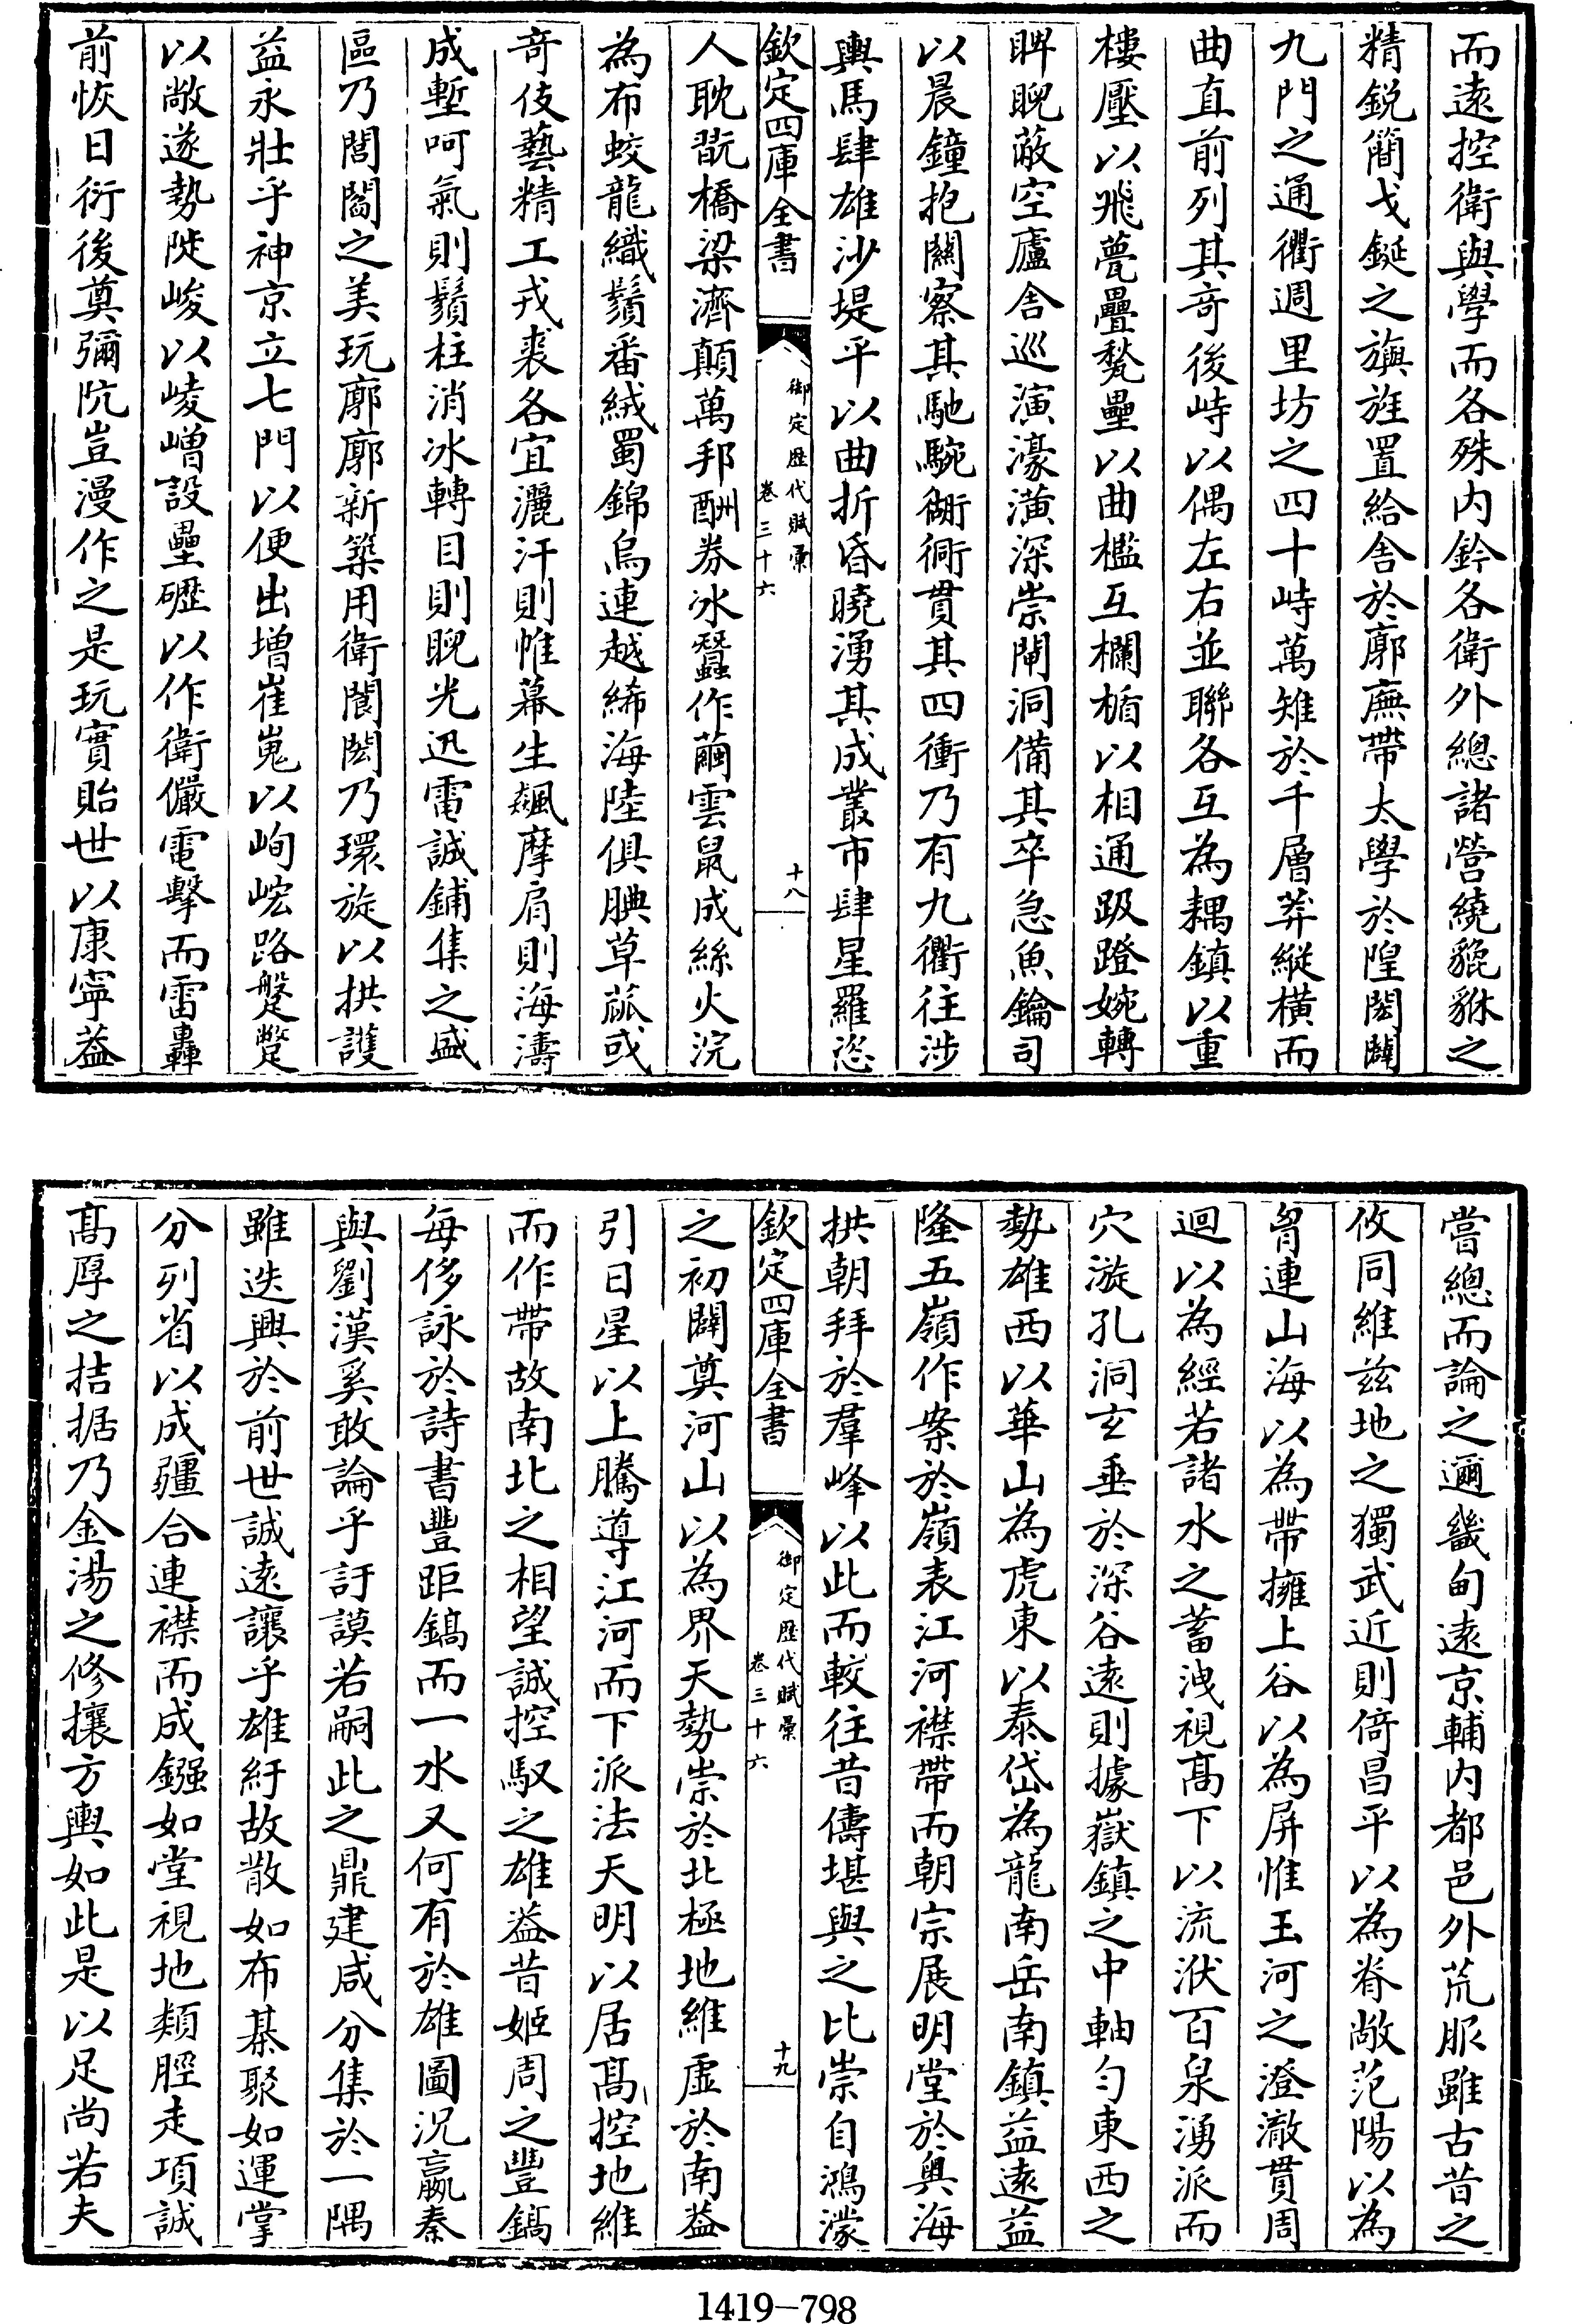 而遠控衛與學而各殊内鈐各衛外總諸營繞貔貅之
精鋭簡戈鋋之旟旌置給舎於廓廡帶太學於隍閎闢
九門之通衢週里坊之四十峙萬雉於千層莽縱横而
曲直前列其竒後峙以偶左右並聯各互為耦鎮以重
樓壓以飛甍疊甃壘以曲檻互欄楯以相通趿蹬婉轉
睥睨蔽空廬舎巡演濠潢深崇閘洞備其卒急魚鑰司
以晨鐘抱闗察其馳騁衚衕貫其四衝乃有九衢往涉
輿馬肆雄沙堤平以曲折昏曉湧其成叢市肆星羅恣
欽定四庫全書
御定歴代賦彙
卷三十六
十八
人耽翫橋梁濟顛萬邦酬券冰蠶作繭雲鼠成絲火浣
為布蛟龍織鬚番絨蜀錦烏連越絺海陸俱腆草蓏或
竒伎藝精工戎裘各宜灑汗則帷幕生飆摩肩則海濤
成塹呵氣則鬚柱消冰轉目則睨光迅電誠鋪集之盛
區乃閭閻之美玩廓廓新築用衛閬閎乃環旋以拱護
益永壯乎神京立七門以便出增崔嵬以峋峵路盤蹩
以敞遂勢陡峻以崚嶒設壘礰以作衛儼電擊而雷轟
前恢日衍後奠彌阬豈漫作之是玩實貽世以康寜葢
嘗總而論之邇畿甸逺京輔内都邑外荒服雖古昔之
攸同維兹地之獨武近則倚昌平以為脊敞范陽以為
胷連山海以為帶擁上谷以為屏惟玉河之澄澈貫周
迴以為經若諸水之蓄洩視髙下以流洑百泉湧派而
穴漩孔洞玄垂於深谷遠則據嶽鎮之中軸勻東西之
勢雄西以華山為虎東以泰岱為龍南岳南鎮益遠益
隆五嶺作案於嶺表江河襟帶而朝宗展明堂於奥海
拱朝拜於羣峰以此而較往昔儔堪與之比崇自鴻濛
欽定四庫全書
御定歴代賦彙
卷三十六
十九
之初闢奠河山以為界天勢崇於北極地維虚於南葢
引日星以上騰導江河而下派法天明以居髙控地維
而作帶故南北之相望誠控馭之雄益昔姬周之豐鎬
每侈詠於詩書豐距鎬而一水又何有於雄圖況嬴秦
與劉漢奚敢論乎訏謨若嗣此之鼎建咸分集於一隅
雖迭興於前世誠遠讓乎雄紆故散如布棊聚如運掌
分列省以成疆合連襟而成鏹如堂視地類脛走項誠
髙厚之拮据乃金湯之修攘方輿如此是以足尚若夫
1419-798